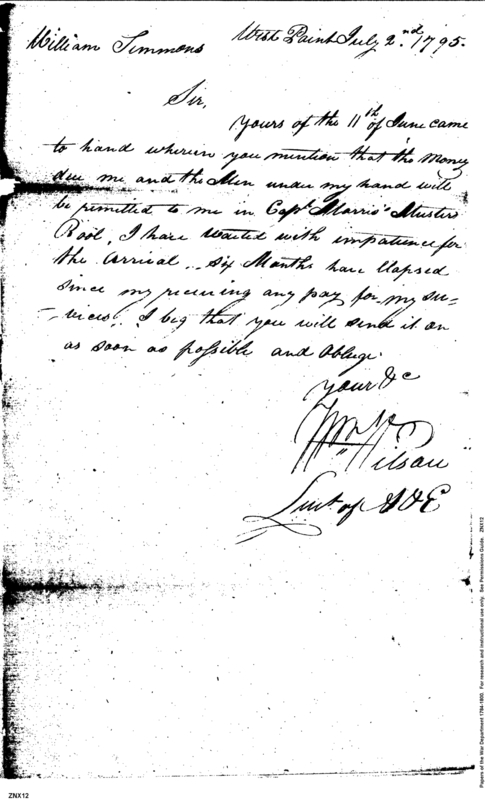 William Simmons West Point July 2nd. 1795.
Sir,
Yours of the 11th of June came
to hand wherein you mention that the Money
due me and the Men under my hand will
be remitted to me in Capt. Morris' Muster
Rool, I have Waited with impatience for
the arrival .. Six Months have Elapsed
since my receiving any pay for my ser=
=vices. I beg that you will send it on
as soon as possible and Oblige.
Your &c
Wilson
Lieut. of A & E
Papers of the War Department 1784-1800. For research and instructional use only. See Permissions Guide. ZNX12
ZNX12